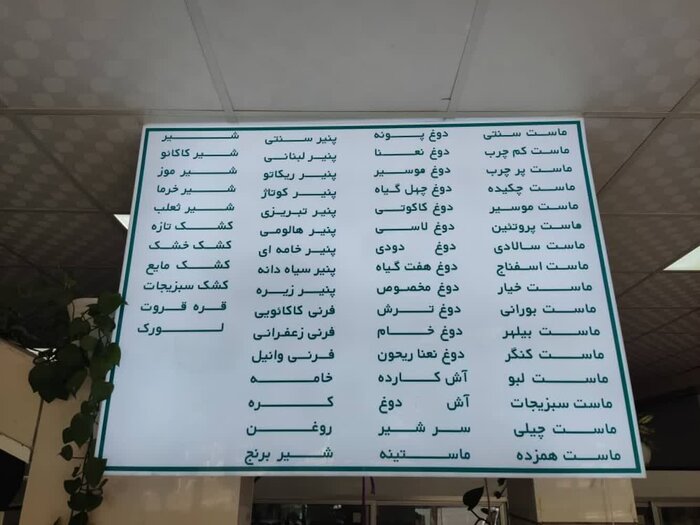 ماست سنتی
ماست کم چرب
ماست پر چرب
ماست چکیده
ماست موسیر
ماست پروتئین
ماست سالادی
ماست اسفناج
ماست خیار
ماست بورانی
ماست بیلهر
ماست کنگر
ماست لبو
ماست سبزیجات
ماست چیلی
ماست همزده
دوغ پونه
دوغ نعنا
دوغ موسیر
دوغ چهل گیاه
دوغ کاکوتی
دوغ لاسی
دوغ دودی
دوغ هفت گیاه
دوغ مخصوص
دوغ ترش
دوغ خام
دوغ نعنا ریحون
آش کارده
آش دوغ
سر شیر
ماستینه
پنیر سنتی
پنیر لبنانی
پنیر ریکاتو
پنیر کوتاژ
پنیر تبریزی
پنیر هالومی
پنیر خامه ای
پنیر سیاه دانه
پنیر زیره
فرنی کاکائویی
فرنی زعفرانی
فرنی وانیل
خامه
کره
روغن
شیر برنج
شیر
شیر کاکائو
شیر موز
شیر خرما
شیر ثعلب
کشک تازه
کشک خشک
کشک مایع
کشک سبزیجات
قره قروت
لورک